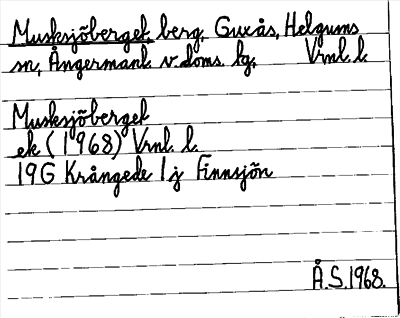 Musksjöberget berg, Guxås, Helgums
sn, Ångermanl. v.doms. lg. Vrml. l.
Musksjöberget
ek (1968) Vrml. l.
19G Krångede 1 j Finnsjön
Å.S. 1968.